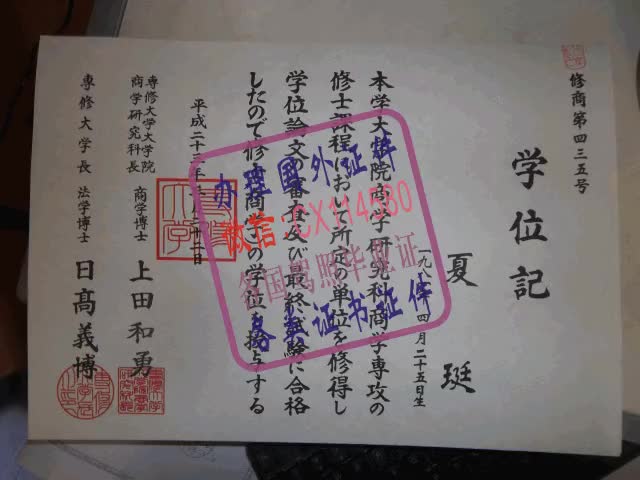 修商第四三五号
学位記
夏 珽
四月二十五日生
本学大学院商学研究科商学専攻の
修士課程において所定の単位を修得し
学位論文の審査及び最終試験に合格
したので修士（商学）の学位を授与する
平成二十三年
専修大学大学院
商学研究科長 商学博士 上田和勇
専修大学長 法学博士 日髙義博
办理國外证件
微信:CX114580
各国驾照毕业证
各类证书证件